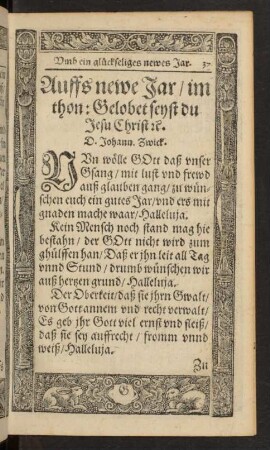 Vmb ein glückseliges newes Jar. 37
Auffs newe Jar / im
thon: Gelobet seyst du
Jesu Christ ꝛc.
D. Johann. Zwick.
NVn wölle GOtt daß vnser
Gsang / mit lust vnd frewd
auß glauben gang / zu wün-
schen euch ein gutes Jar / vnd ers mit
gnaden mache waar / Halleluja.
Kein Mensch noch stand mag hie
bestahn / der GOtt nicht wird zum
ghülffen han / Daß er jhn leit all Tag
vnnd Stund / drumb wünschen wir
auß hertzen grund / Halleluja.
Der Oberkeit / daß sie jhrn Gwalt /
von Gott annem vnd recht verwalt /
Es geb jhr Gott viel ernst vnd fleiß /
daß sie sey auffrecht / fromm vnnd
weiß / Halleluja.
Zu